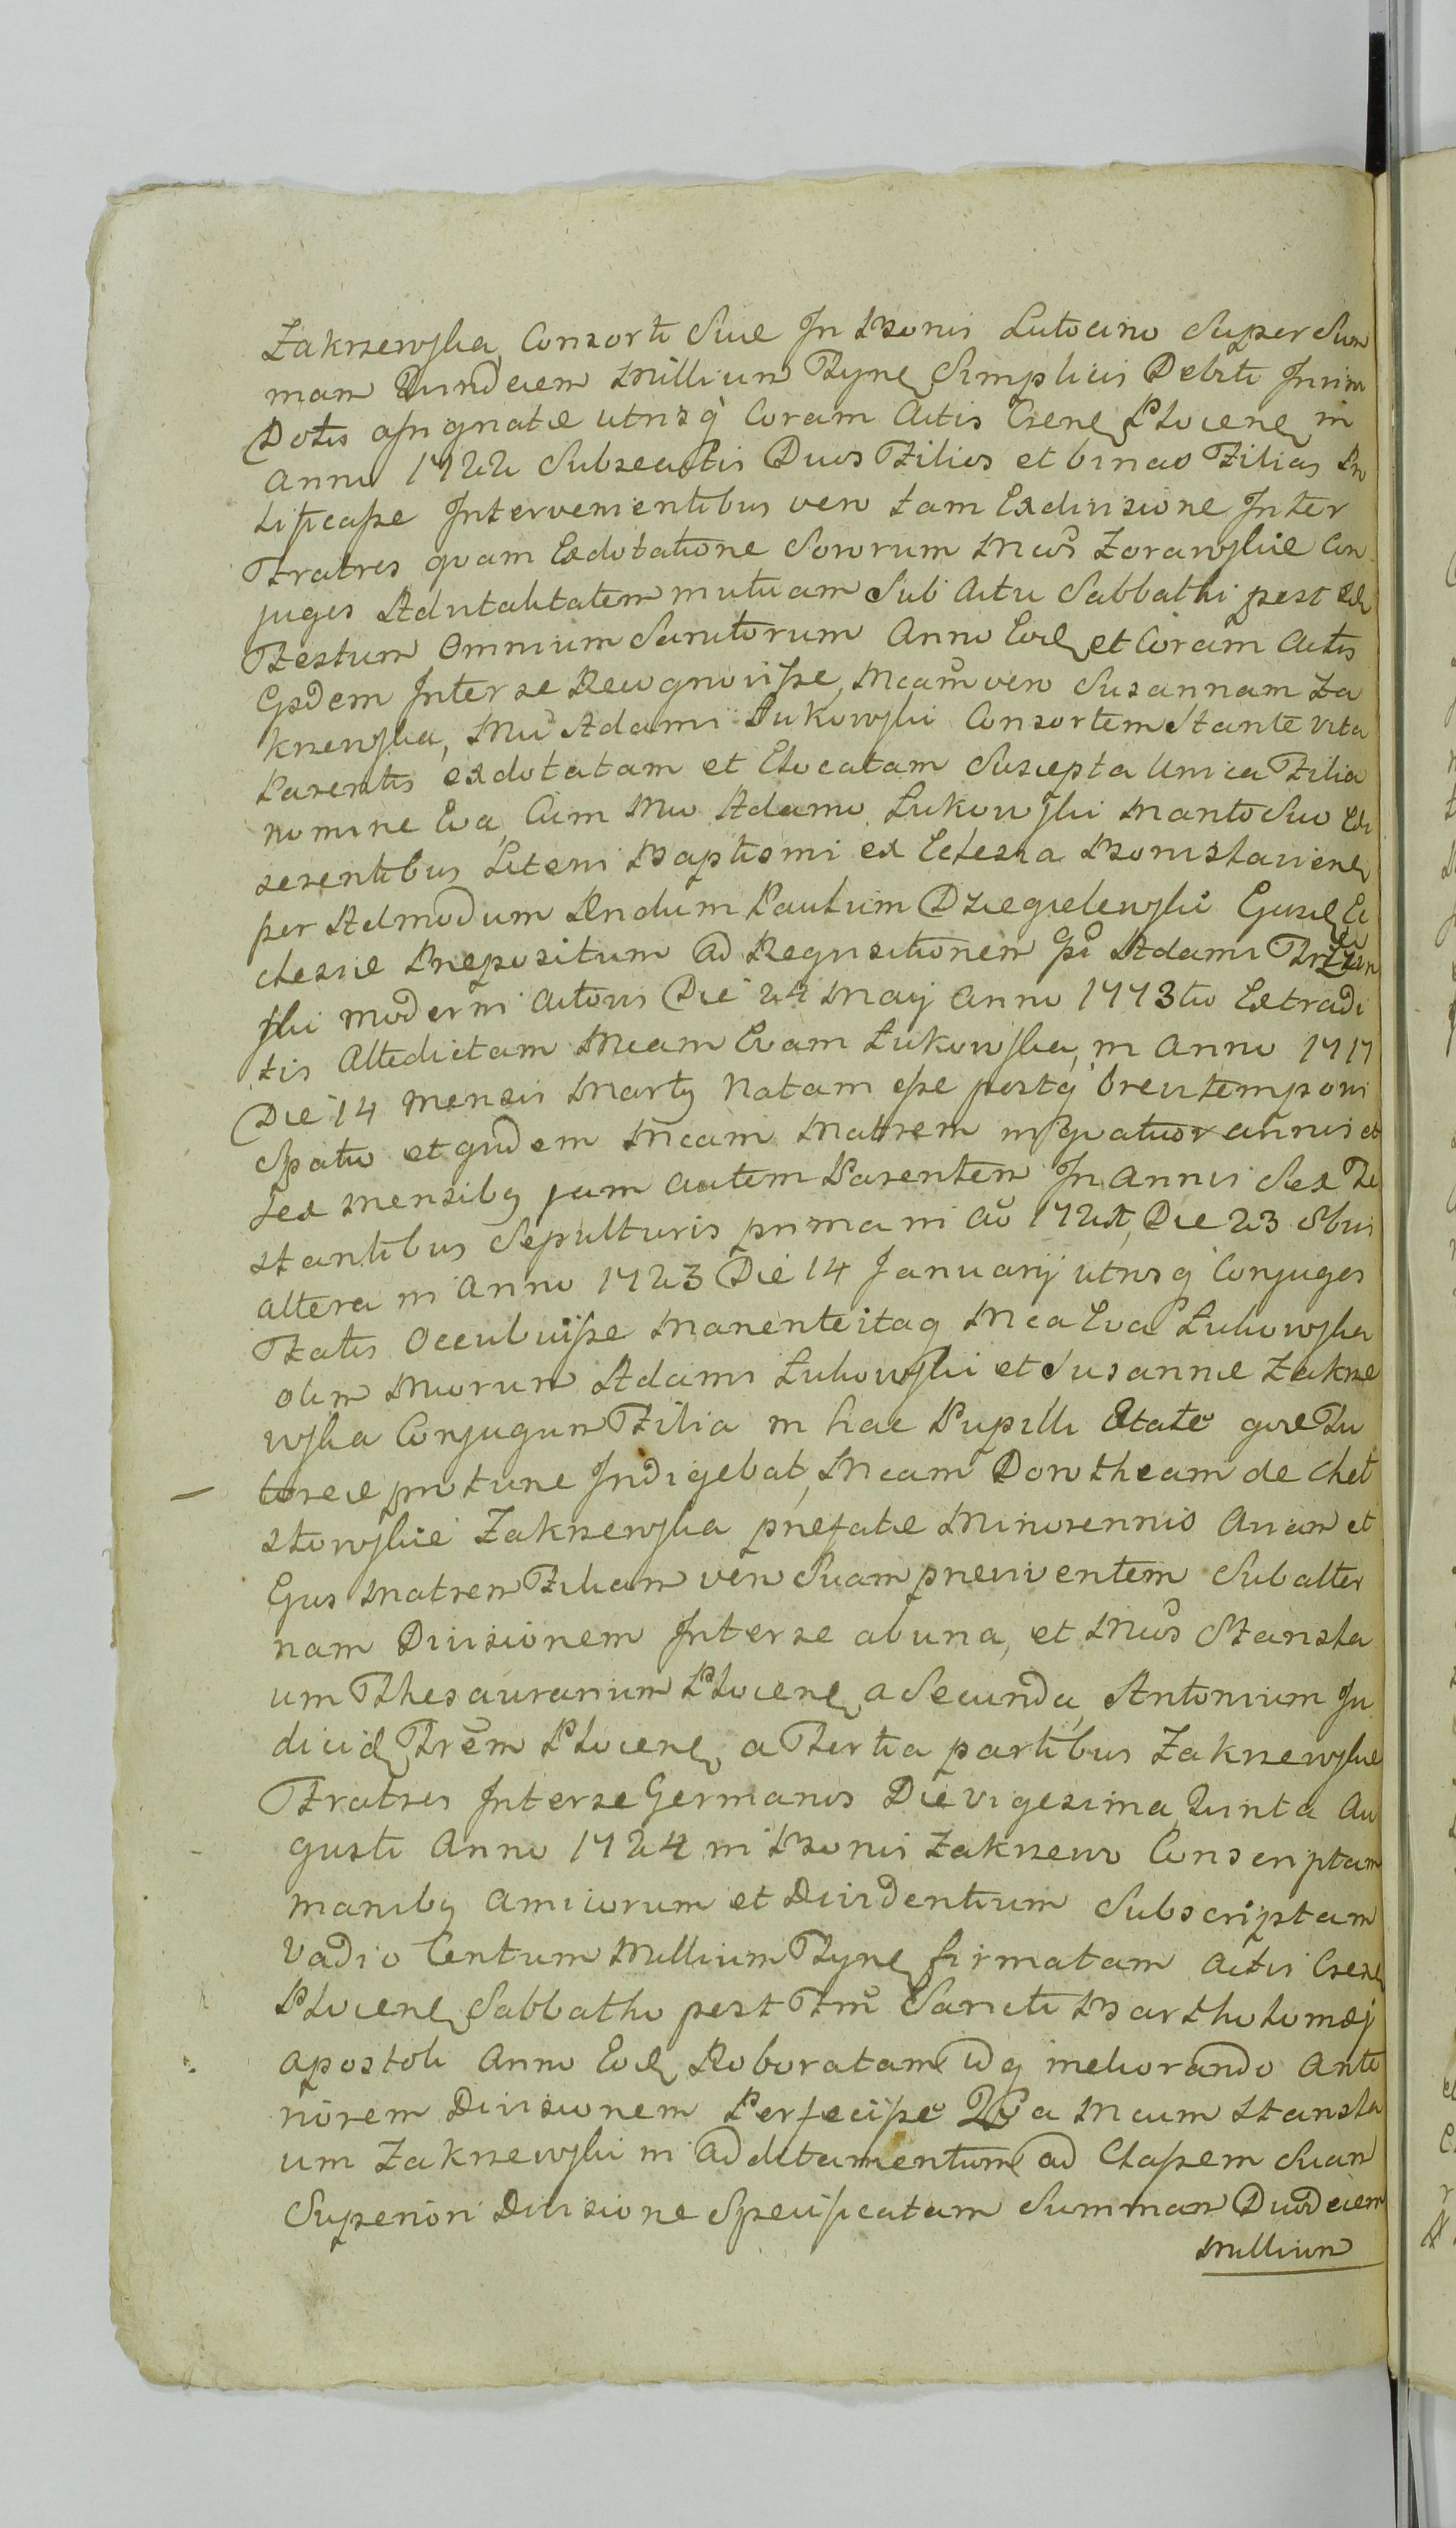 Zakrzewska, Consorti Suæ In Bonis Lutocino Super Sum
mam Quindecem Millium Flγne Simplicis Debiti In vim
Dotis assignatæ utrisq Coram Actis Csene Plocene in
Anno 1722 Subsecutis Duos Filios et binas Filias Pro
lificasse Intervenientibus vero tam Exdivisione Inter
Fratres quam Exdotatione Sororum Mcos Zorawskie Con
juges Advitalitatem mutuam Sub Actu Sabbathi post
Festum Omnium Sanctorum Anno Eod et Coram Actis
Eisdem Inter se Recognovisse, Mcam vero Susannam Za
krzewska, Mci Adami Lukowski Consortem Stante vita
Parentis exdotatam et Elocatam Suscepta Unica Filia
nomine Eva, Cum Mco Adamo Lukowski Marito Suo Edi
serentibus Literis Baptismi ex Eclesia Bonislaviens
per Admodum Rndum Paulum Dziegielewski Ejusd Ec
clesiæ Præpositum ad Requisitionem Gsi Adami
ski moderni Actoris Die 24 Maij Anno 1773tio Extradi
tis Attedictam Mcam Evam Lukowska, in Anno 1717
Die 14 Mensis Martij Natam esse postq brevi temporis
Spatio et quidem Mcam Matrem in quatuor annis et
Sex Mensibq jam autem Parentem In Annis Sex Te
stantibus Sepulturis prima in Ao 1721, Die 23 8bris
altera in Anno 1723 Die 14 Januarij utrosq Conjuges
Fatis Occubuisse Manente itaq Mca Eva Lukowska
olim Mcorum Adami Lukowski et Susannæ Zakrze
wska Conjugum Filia in hac Pupilli Etate quæ Tu
torere pro tunc Indigebat, Mcam Dorotheam de Chel
stowskie Zakrzewska præfatæ Minorennis Aviam et
Ejus Matrem Filiam vero Suam præviventem Sub alter
nam Divisionem Inter se ab una, et Mcos Stanisla
um Thesaurarium Plocene a Secunda, Antonium Ju
dicid Trem Plocene, a Tertia partibus Zakrzewskie
Fratres Inter se Germanos Die vigesima Quinta Au
gusti Anno 1724 in Bonis Zakrzewo Conscriptam
manibq Amicorum et Dividentium Subscriptam
Vadio Centum Millium Flγne firmatam Actis Csene
Plocene Sabbatho post Ftm Sancti Bartholomæj
Apostoli Anno Eod Roboratam idq meliorando Ante
riorem Divisionem Perfecisse Qua Mcum Stanisla
um Zakrzewski in Additamentum ad Classem Suam
Superiori Divisione Specificatam Summam Duodecem
Millium